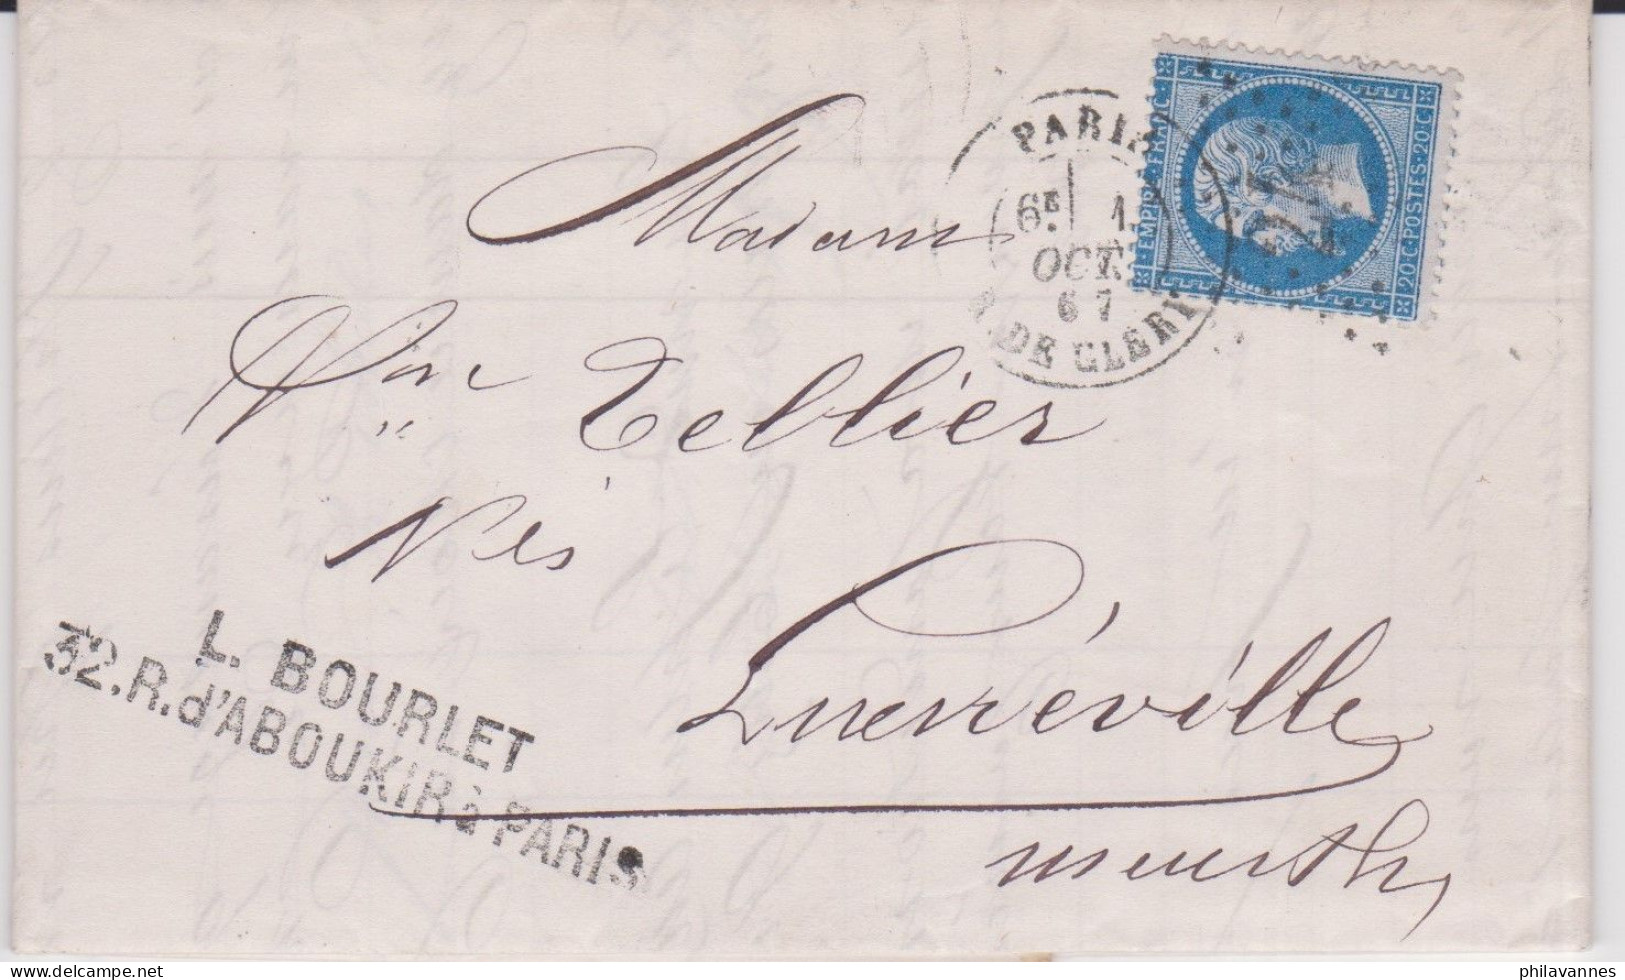 Madame
Vve Tellier
Nés
Lunéville
meurthe
L. BOURLET
32.R.d'ABOUKIR à PARIS
PARIS
6E 1
OCT.
67
R. DE CLERY
EMPIRE FRANC
20 C POSTES 20 C
24
philavannes